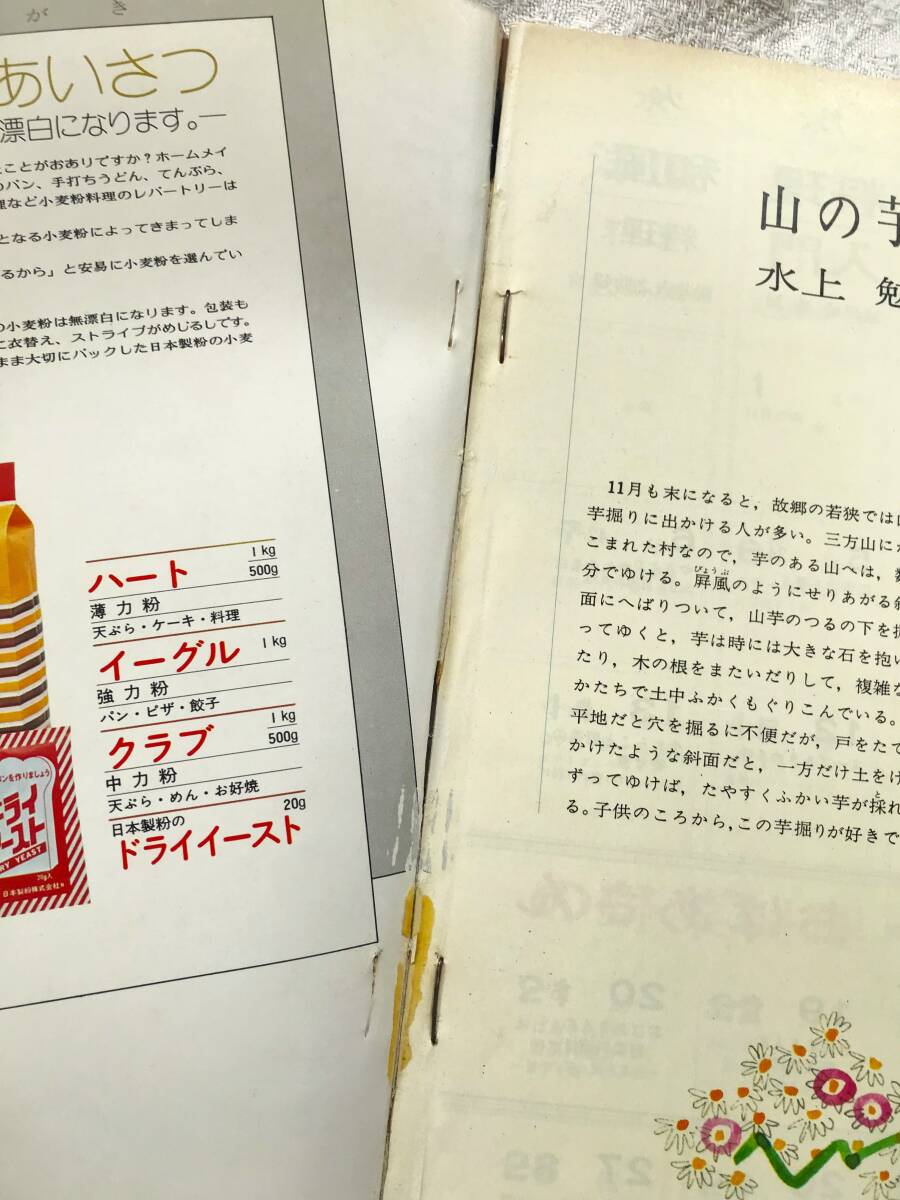 がき
あいさつ
漂白になります。―
ことがおありですか？ホームメイ
のパン、手打ちうどん、てんぷら、
理など小麦粉料理のレパートリーは
となる小麦粉によってきまってしま
るから」と安易に小麦粉を選んでい
の小麦粉は無漂白になります。包装も
に衣替え、ストライプがめじるしです。
まま大切にパックした日本製粉の小麦
ハート 1kg
500g
薄力粉
天ぷら・ケーキ・料理
イーグル 1kg
強力粉
パン・ピザ・餃子
クラブ 1kg
500g
中力粉
天ぷら・めん・お好焼
日本製粉の 20g
ドライイースト
パンを作りましょう
ライ
ースト
RY YEAST
20g入
日本製粉株式会社
山の芋
水上 勉
11月も末になると，故郷の若狭では
芋掘りに出かける人が多い。三方山に
こまれた村なので，芋のある山へは，
分でゆける。屛風のようにせりあがる斜
びょうぶ
面にへばりついて，山芋のつるの下を掘
ってゆくと，芋は時には大きな石を抱い
たり，木の根をまたいだりして，複雑な
かたちで土中ふかくもぐりこんでいる。
平地だと穴を掘るに不便だが，戸をたて
かけたような斜面だと，一方だけ土をけ
ずってゆけば，たやすくふかい芋が採れ
と
る。子供のころから，この芋掘りが好きで